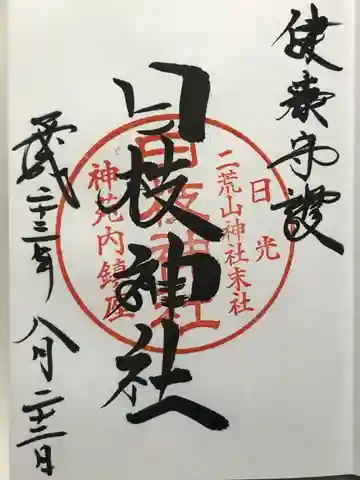 健康守護
日枝神社
日光
二荒山神社末社
日枝神社
神苑内鎮座
平成二十三年八月二十二日